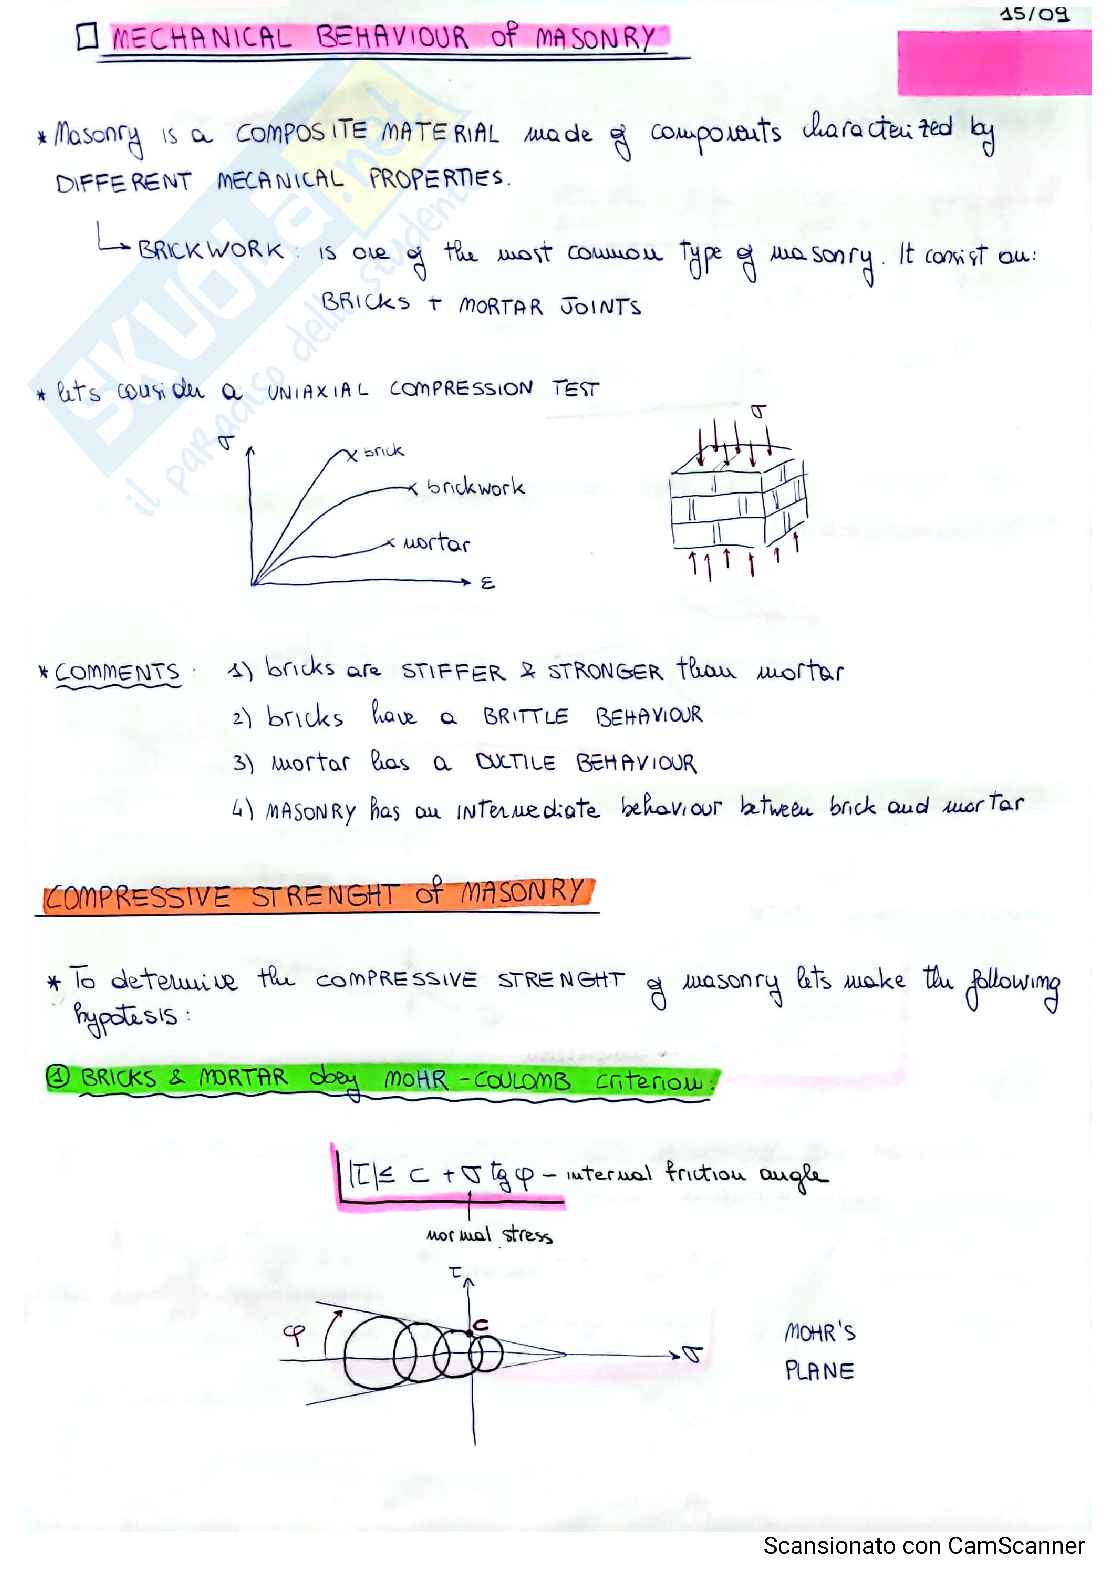 15/09
MECHANICAL BEHAVIOUR of MASONRY
* Masonry is a COMPOSITE MATERIAL made of components characterized by
DIFFERENT MECANICAL PROPERTIES.
BRICKWORK: is one of the most common type of masonry. It consist on:
BRICKS + MORTAR JOINTS
* lets consider a UNIAXIAL COMPRESSION TEST
σ
brick
brickwork
mortar
ε
σ
* COMMENTS: 1) bricks are STIFFER & STRONGER than mortar
2) bricks have a BRITTLE BEHAVIOUR
3) mortar has a DUCTILE BEHAVIOUR
4) MASONRY has an INTErmediate behaviour between brick and mortar
COMPRESSIVE STRENGHT of MASONRY
* To determine the COMPRESSIVE STRENGHT of masonry lets make the following
hypotesis:
① BRICKS & MORTAR obey MOHR-COULOMB criterion:
|τ| ≤ c + σ tg φ - internal friction angle
normal stress
τ
c
φ
σ
MOHR'S
PLANE
SKUOLA.net
il paradiso dello studente
Scansionato con CamScanner